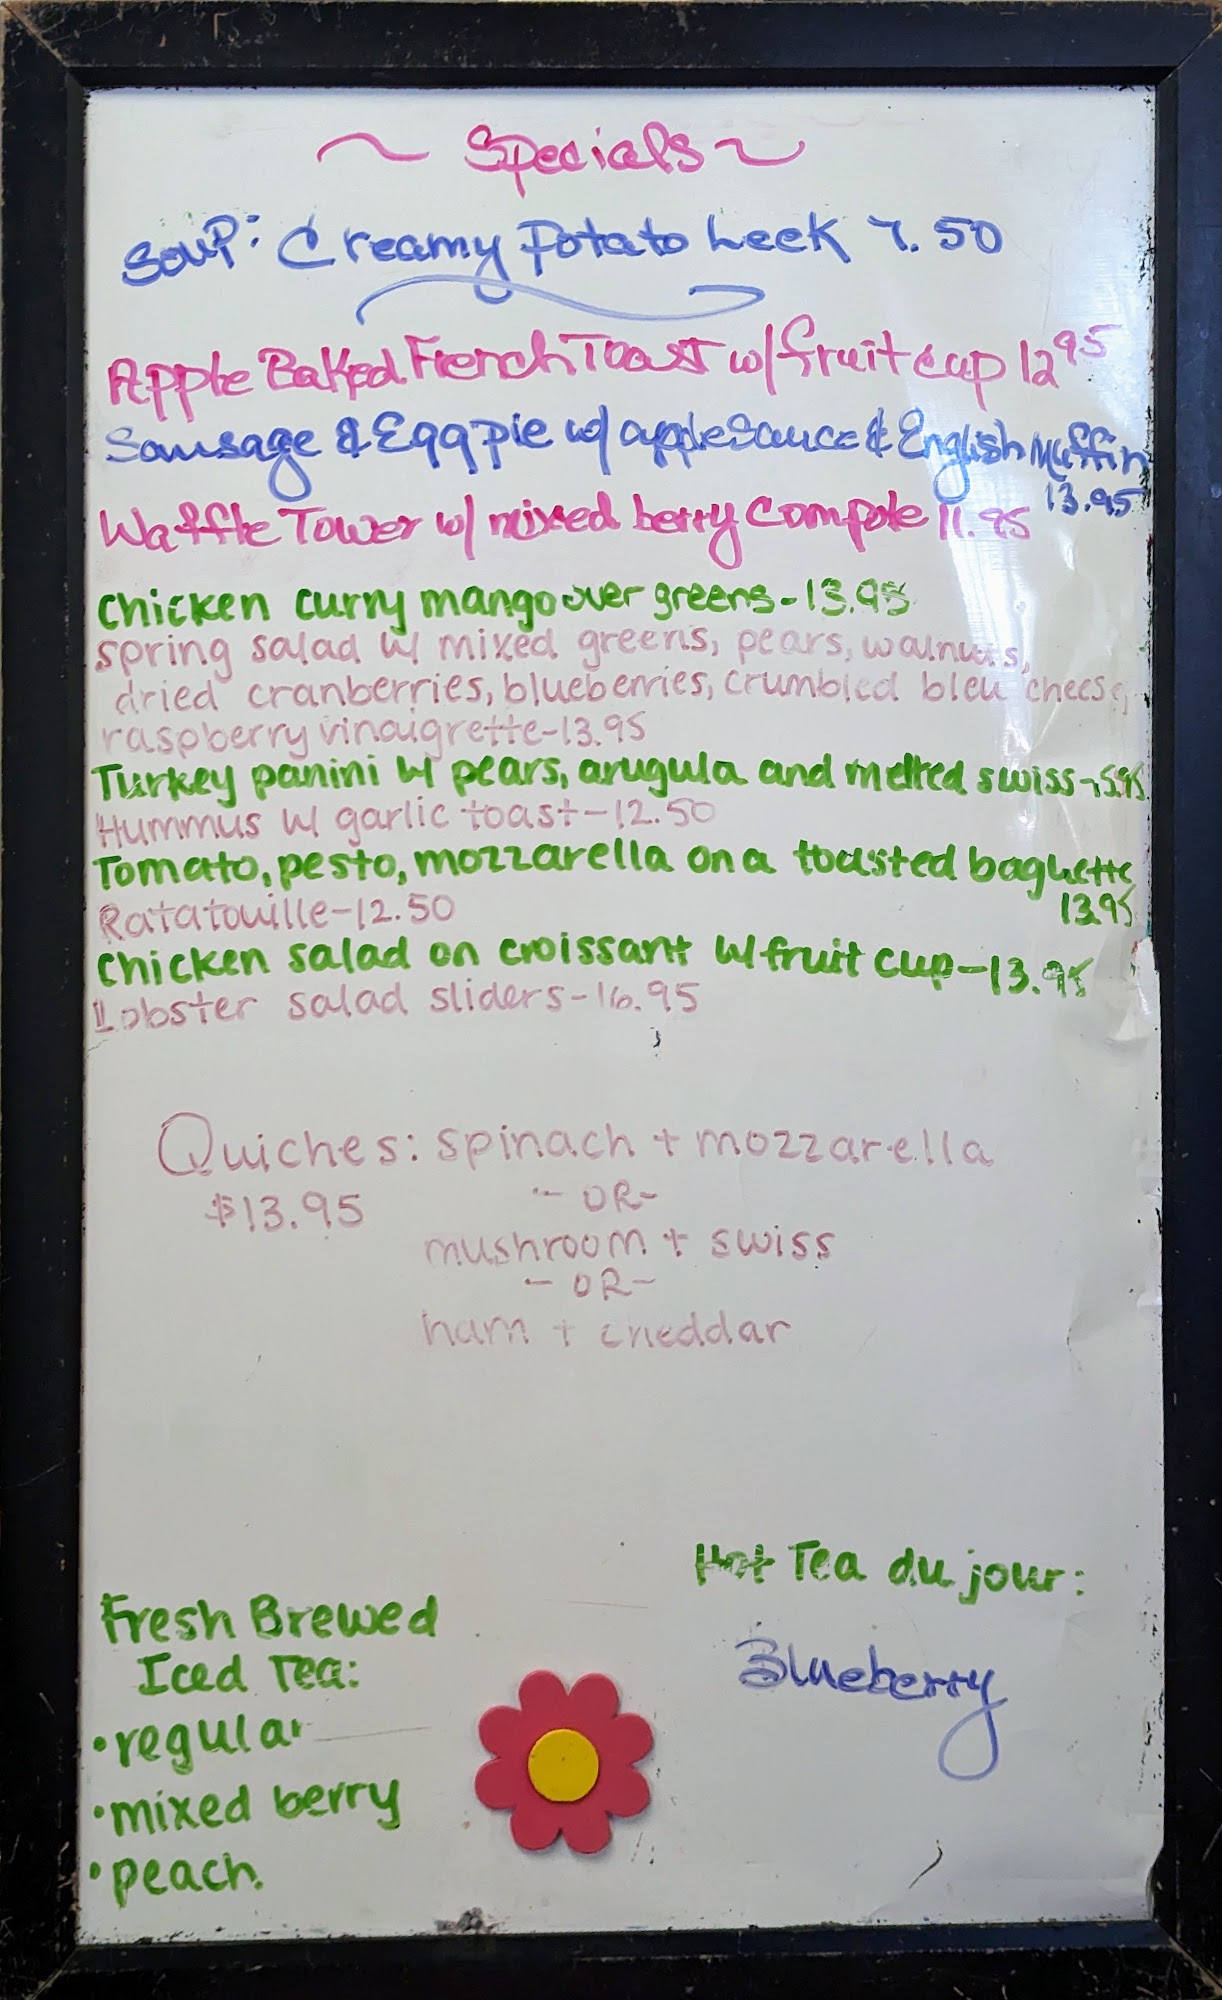 ~ Specials ~
Soup: Creamy Potato Leek 7.50
Apple Baked French Toast w/ fruit cup 12.95
Sausage & Egg pie w/ applesauce & English Muffin
13.95
Waffle Tower w/ mixed berry compote 11.95
Chicken curry mango over greens - 13.95
spring salad w/ mixed greens, pears, walnuts,
dried cranberries, blueberries, crumbled bleu cheese,
raspberry vinaigrette - 13.95
Turkey panini w/ pears, arugula and melted swiss -
Hummus w/ garlic toast - 12.50
Tomato, pesto, mozzarella on a toasted baguette
13.95
Ratatouille - 12.50
Chicken salad on croissant w/ fruit cup - 13.95
Lobster salad sliders - 16.95
Quiches: spinach + mozzarella
$13.95 - OR -
mushroom + swiss
- OR -
ham + cheddar
Hot Tea du jour:
Blueberry
Fresh Brewed
Iced Tea:
• regular
• mixed berry
• peach